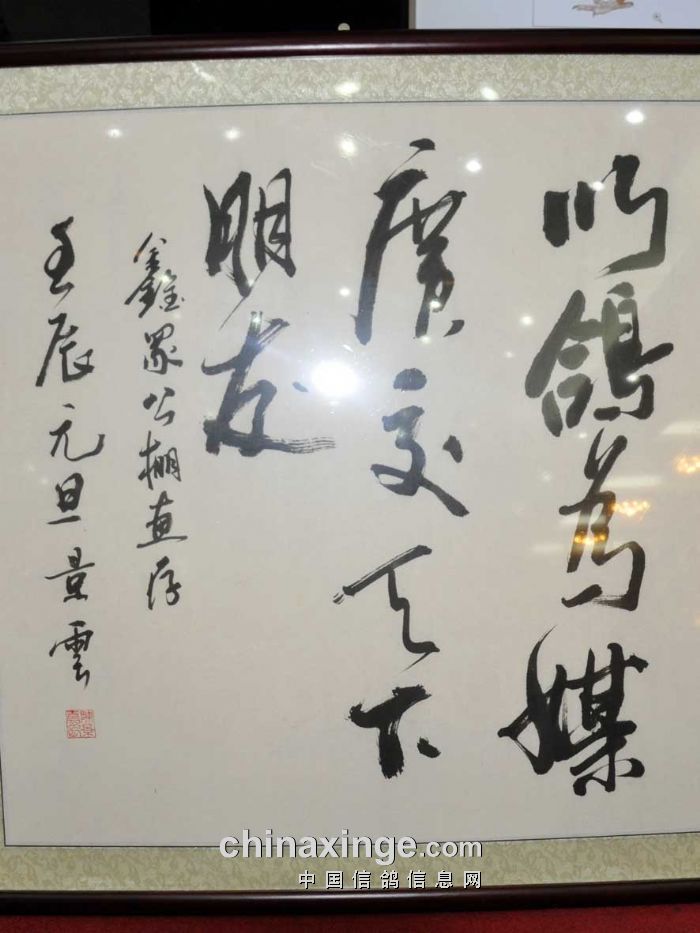 以鴿為媒
廣交天下
朋友
鑫公棚惠存
壬辰元旦景雲
chinaxinge.com
中国信鸽信息网